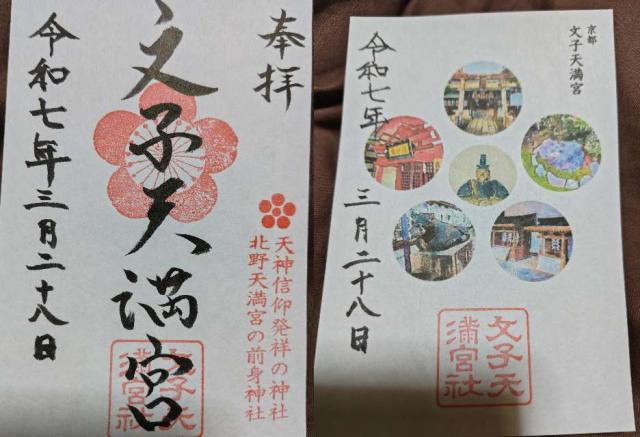 奉拝
文子天満宮
令和七年三月二十八日
天神信仰発祥の神社
北野天満宮の前身神社
文子天
満宮社
京都
文子天満宮
令和七年
三月二十八日
文子天
満宮社